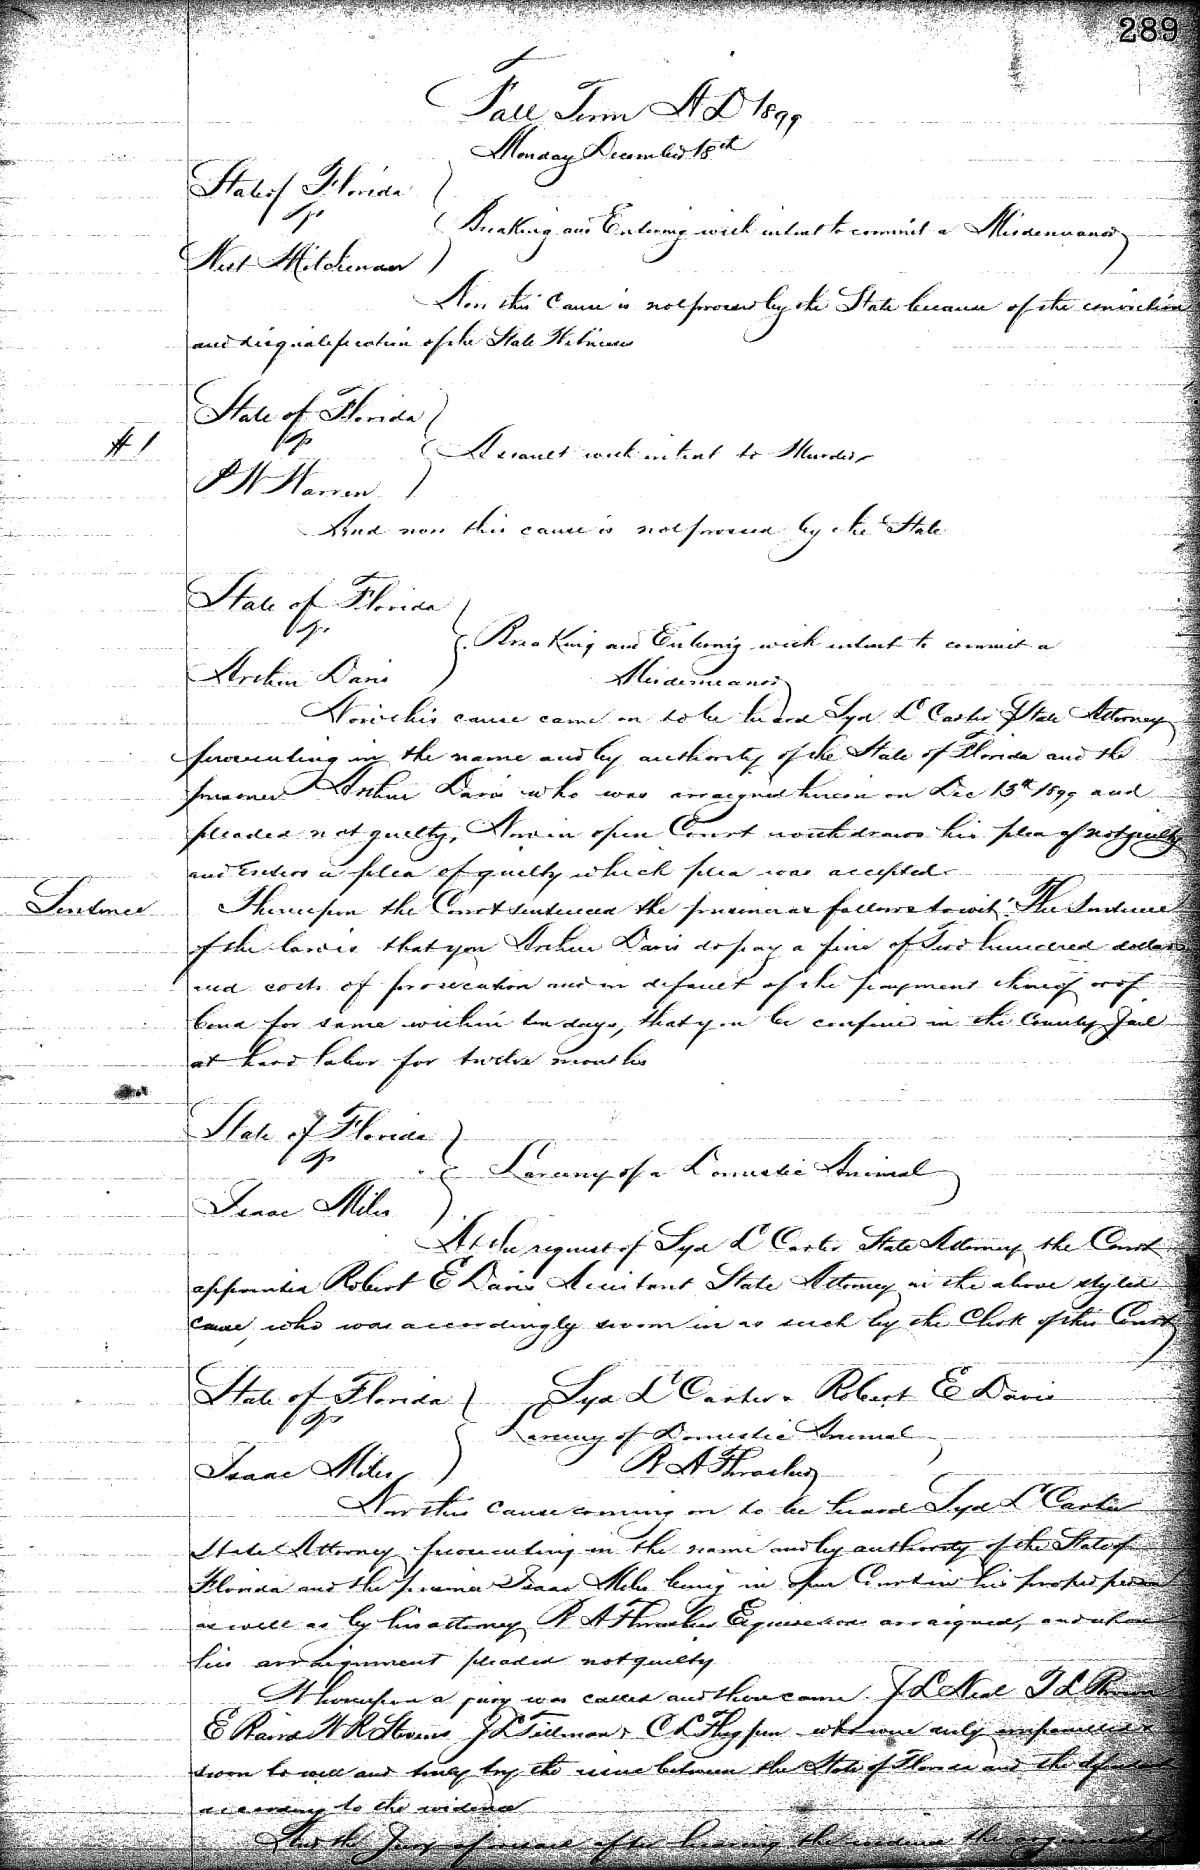 289
Fall Term A D 1899
Monday December 18th
State of Florida
vs
Breaking and Entering with intent to commit a Misdemeanor
Now this Cause is nolprossed by the State because of the conviction
and disqualification of the State Witnesses
State of Florida
# 1
vs
Assault with intent to Murder
Warren
And now this cause is nolprossed by the State
State of Florida
vs
Breaking and Entering with intent to commit a
Arthur Davis
Misdemeanor
Now this cause came on to be heard Syd L Carter State Attorney
prosecuting in the name and by authority of the State of Florida and the
prisoner Arthur Davis who was arraigned herein on Dec 13th 1899 and
pleaded not guilty, Now in open Court withdraws his plea of not guilty
and Enters a plea of guilty which plea was accepted.
Sentence
Thereupon the Court sentenced the prisoner as follows towit: The Sentence
of the law is that you Arthur Davis do pay a fine of Two hundred dollars
and costs of prosecution and in default of the payment thereof or of
bond for same within ten days, that you be confined in the County Jail
at hard labor for twelve months
State of Florida
vs
Larceny of a Domestic Animal
Isaac Miles
At the request of Syd L Carter State Attorney the Court
appointed Robert E Davis Assistant State Attorney in the above styled
cause, who was accordingly sworn in as such by the Clerk of this Court
State of Florida
Syd L Carter & Robert E Davis
vs
Larceny of Domestic Animal
Isaac Miles
R A Thrasher
Now this cause coming on to be heard Syd L Carter
State Attorney prosecuting in the name and by authority of the State of
Florida and the prisoner Isaac Miles being in open Court in his proper person
as well as by his attorney R A Thrasher Esquire was arraigned, and upon
his arraignment pleaded not guilty
Whereupon a jury was called and there came J L Neal T L Brown
E W R Stevens J L Tillman & C L who were duly impanelled &
sworn to well and truly try the issue between the State of Florida and the defendant
according to the evidence
And the Jury aforesaid after hearing the evidence the argument of